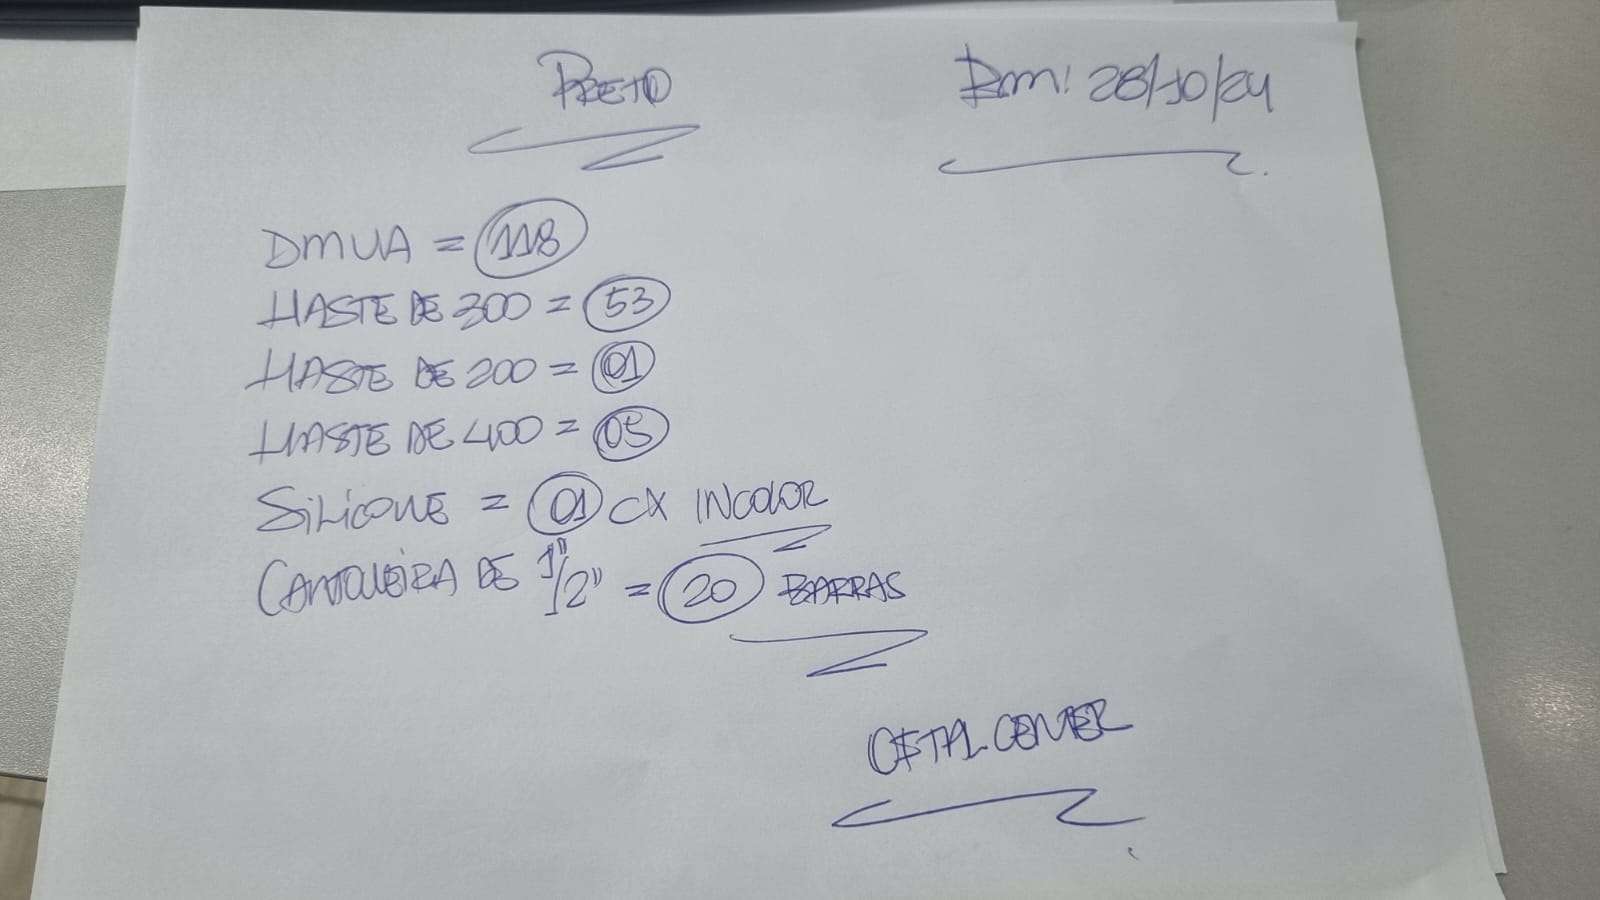 PRETO
28/10/24
DMUA = 118
HASTE DE 300 = 53
HASTE DE 200 = 01
HASTE DE 400 = 05
SILICONE = 01 CX INCOLOR
CANTOUEIRA DE 1"/2" = 20 BARRAS
CENTER